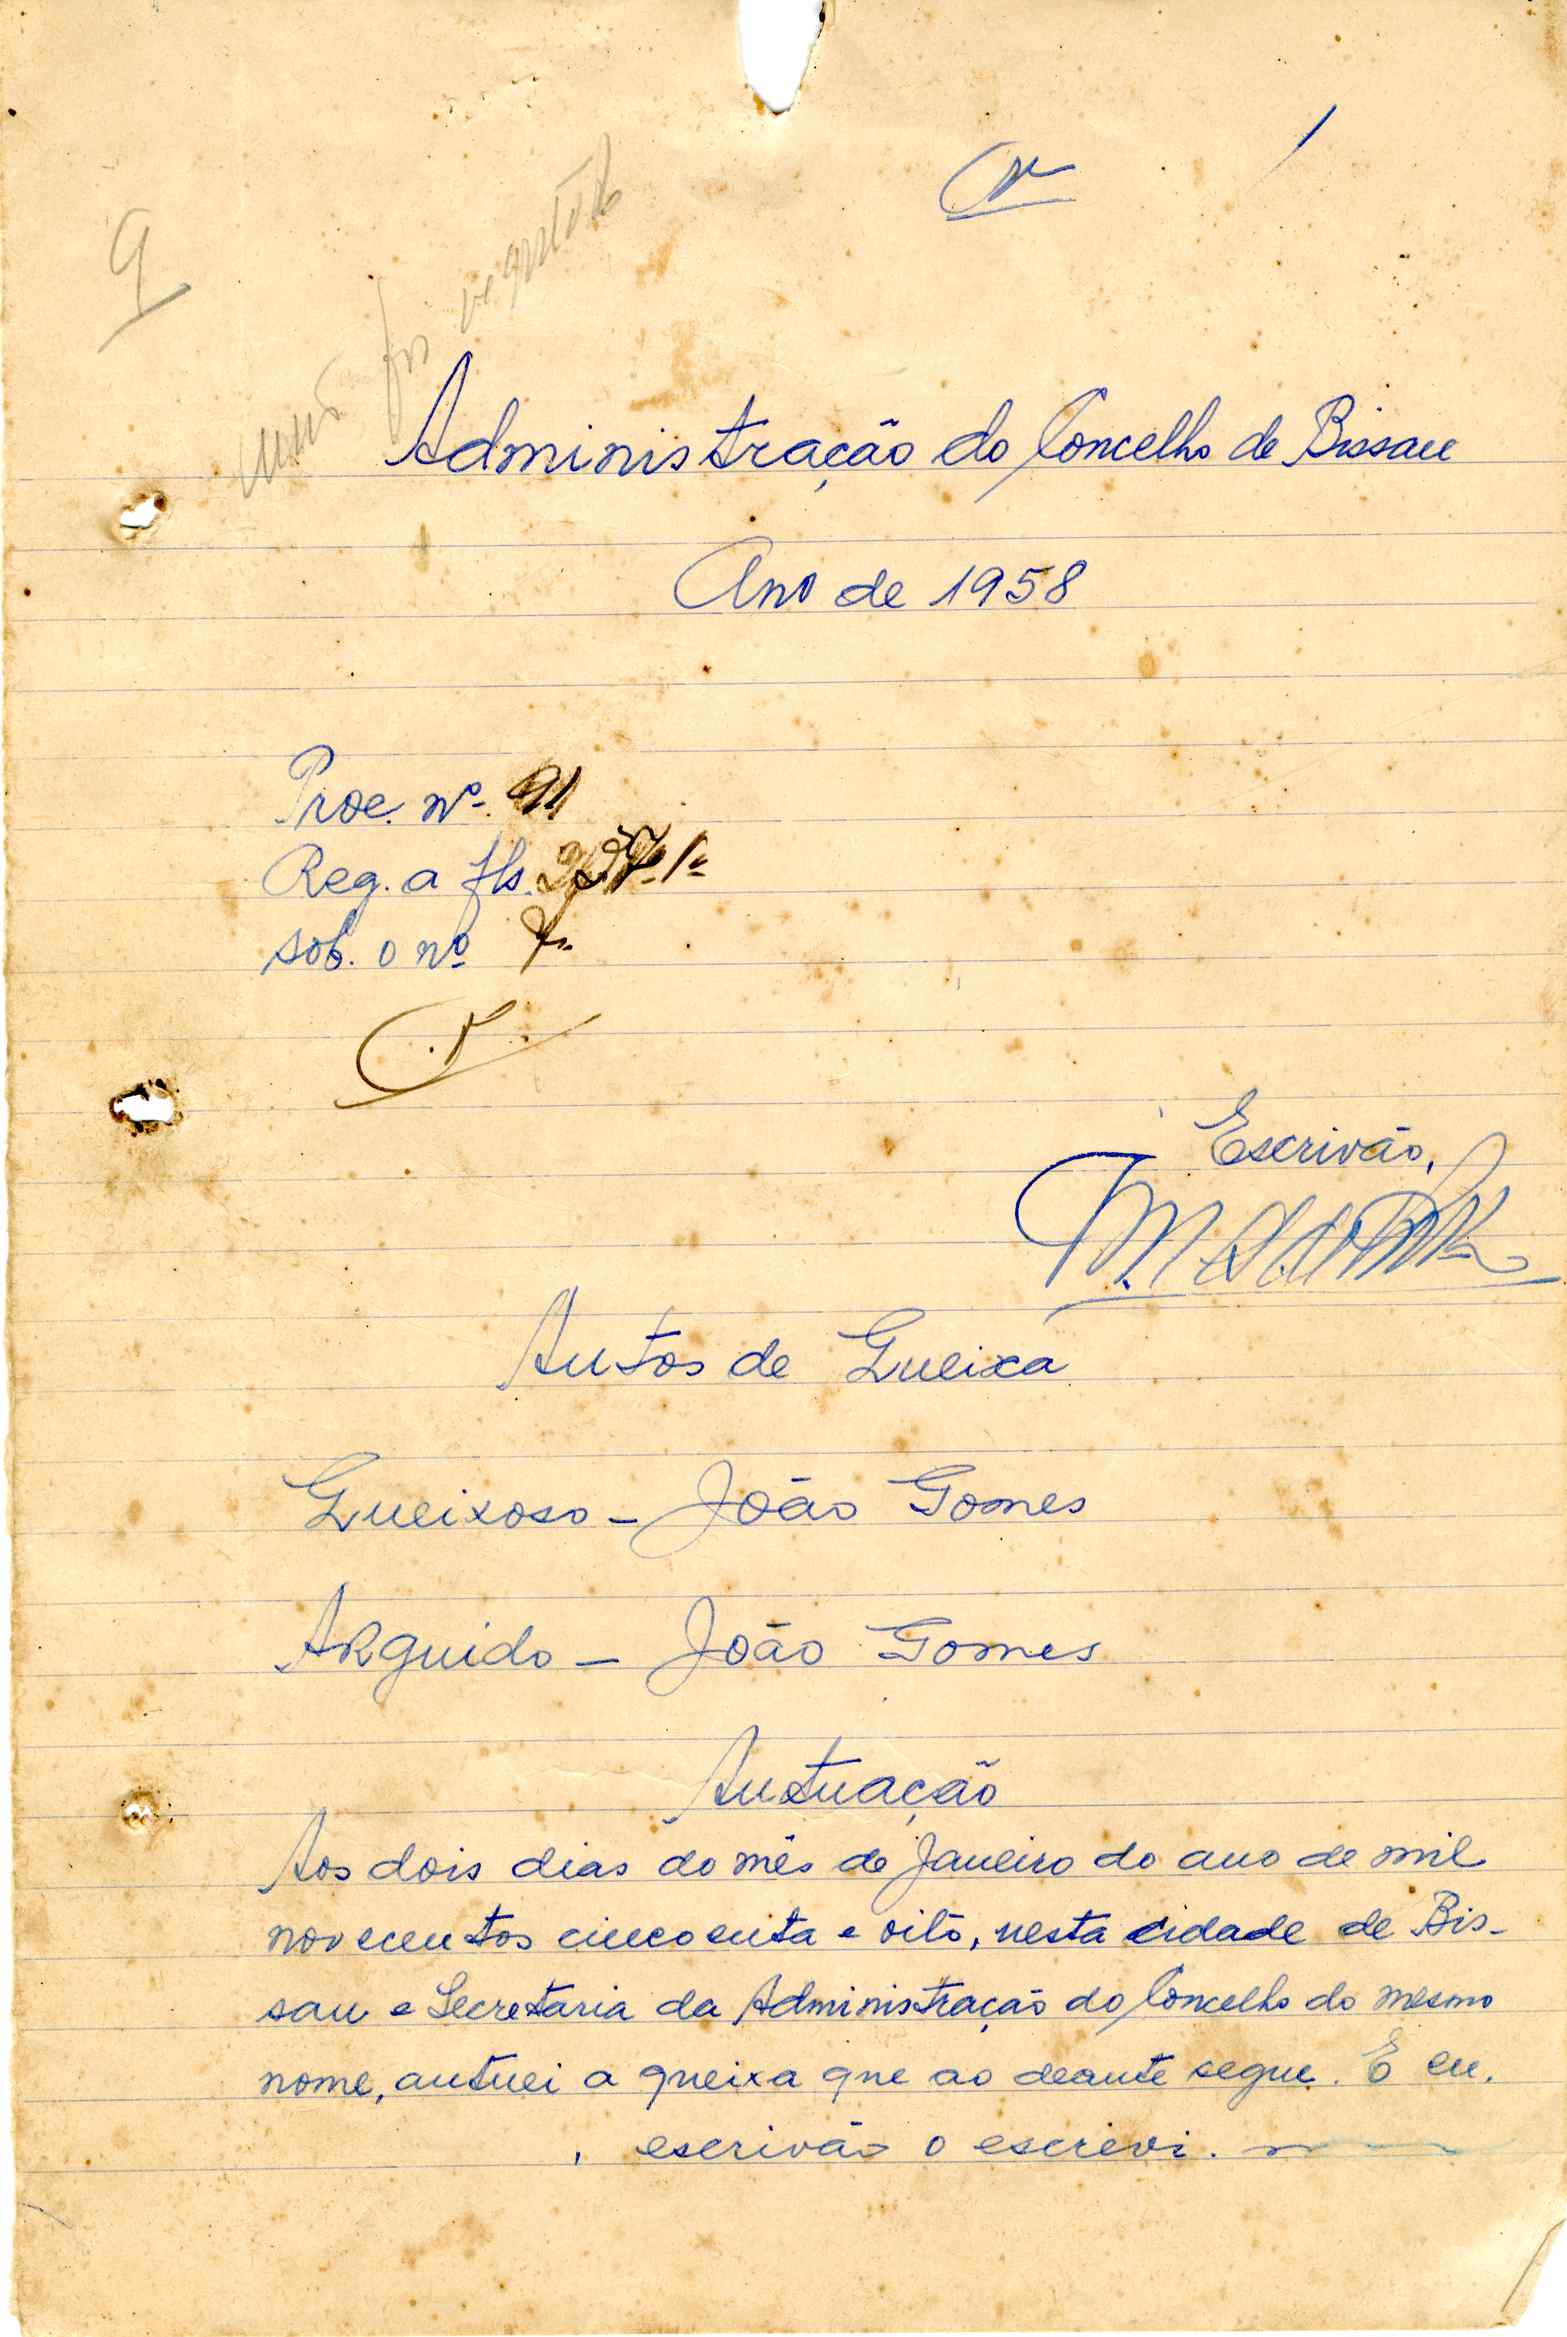 9
Administração do Concelho de Bissau
Ano de 1958
Proc. nº 91
Reg. a fls.
sob. o nº
Escrivão,
Autos de Queixa
Queixoso - João Gomes
Arguido - João Gomes
Autuação
Aos dois dias do mês de Janeiro do ano de mil
novecentos cincoenta e oito, nesta cidade de Bis-
sau e Secretaria da Administração do Concelho do mesmo
nome, autuei a queixa que ao deante segue. E eu,
, escrivão o escrevi.